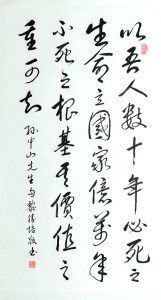 以吾人數十年必死之
生命立國家億萬年
不死之根基其價值之
重可知
孫中山先生句黎培敬书